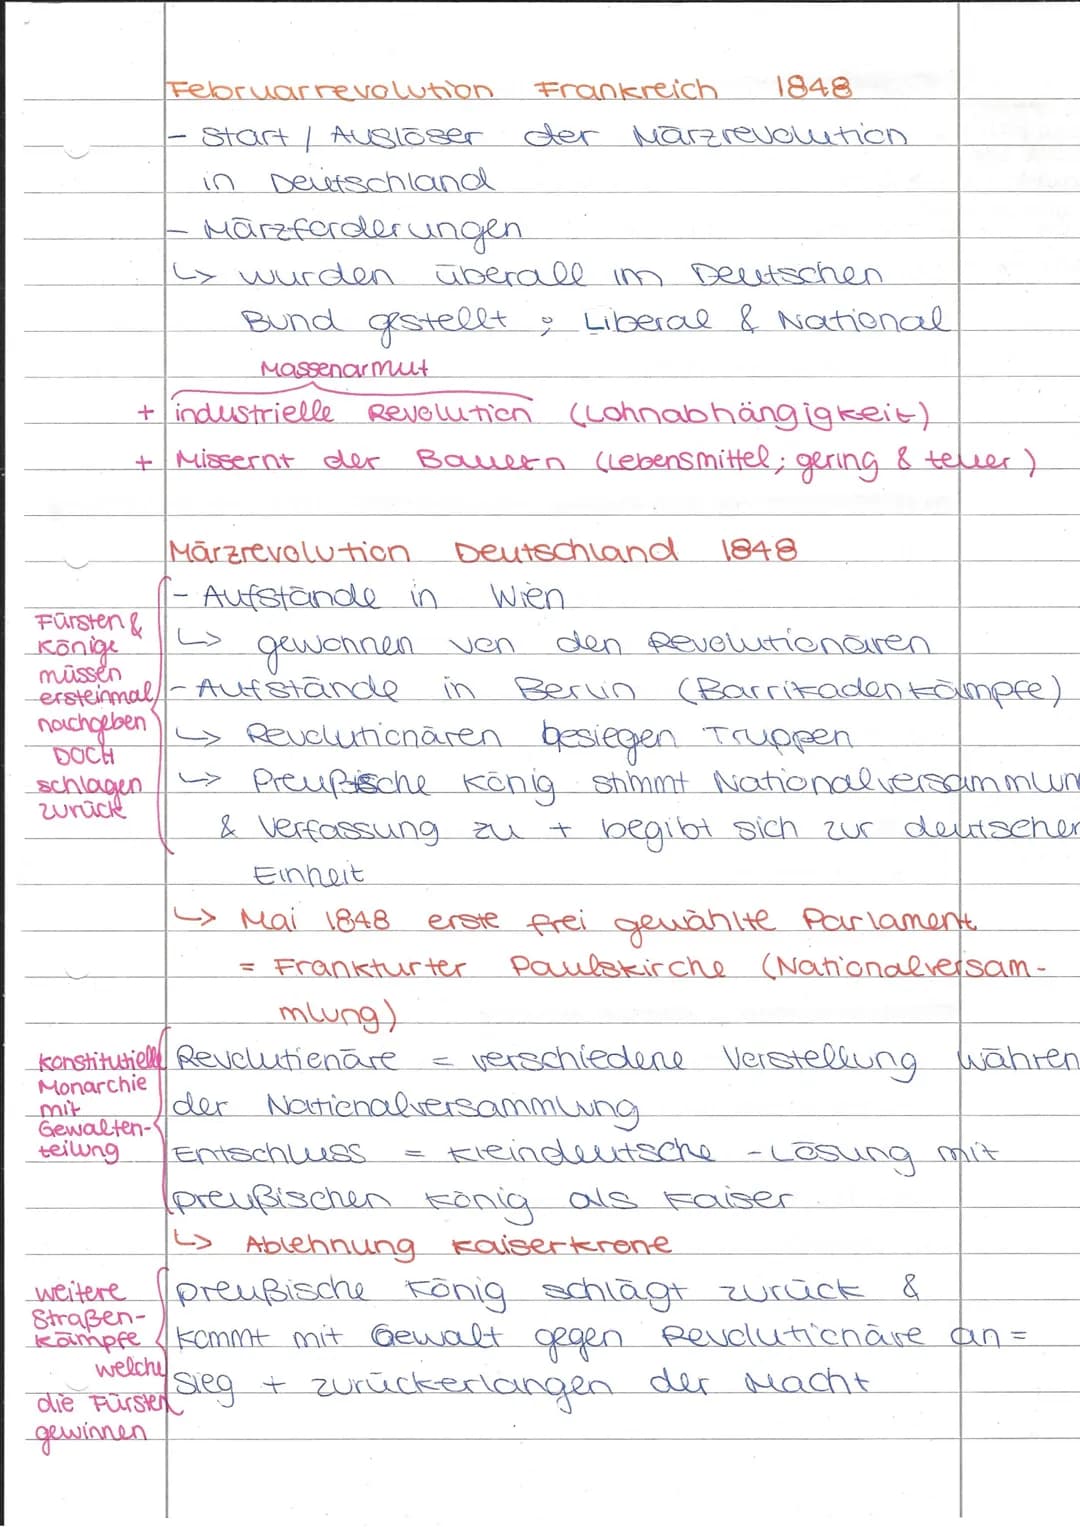 Februarrevolution Frankreich 1848
- Start / Auslöser der Märzrevolution
in Deutschland
- Märzforderungen
↳ wurden überall im Deutschen
Bund gestellt ; Liberal & National
Massenarmut
+ industrielle Revolution (Lohnabhängigkeit)
+ Missernt der Bauern (Lebensmittel; gering & teuer)
Märzrevolution Deutschland 1848
- Aufstände in Wien
↳ gewonnen von den Revolutionären
- Aufstände in Berlin (Barrikadenkämpfe)
↳ Revolutionären besiegen Truppen
↳ Preußische König stimmt Nationalversammlun
& Verfassung zu + begibt sich zur deutschen
Einheit
Fürsten &
Könige
müssen
ersteinmal
nachgeben
DOCH
schlagen
zurück
↳ Mai 1848 erste frei gewählte Parlament
= Frankfurter Paulskirche (Nationalversam-
mlung)
Revolutionäre = verschiedene Vorstellung währen
der Nationalversammlung
Entschluss = kleindeutsche - Lösung mit
preußischen König als Kaiser
konstitutielle
Monarchie
mit
Gewalten-
teilung
↳ Ablehnung Kaiserkrone
preußische König schlägt zurück &
kommt mit Gewalt gegen Revolutionäre an =
Sieg + zurückerlangen der Macht
weitere
Straßen-
kämpfe
welche
die Fürsten
gewinnen